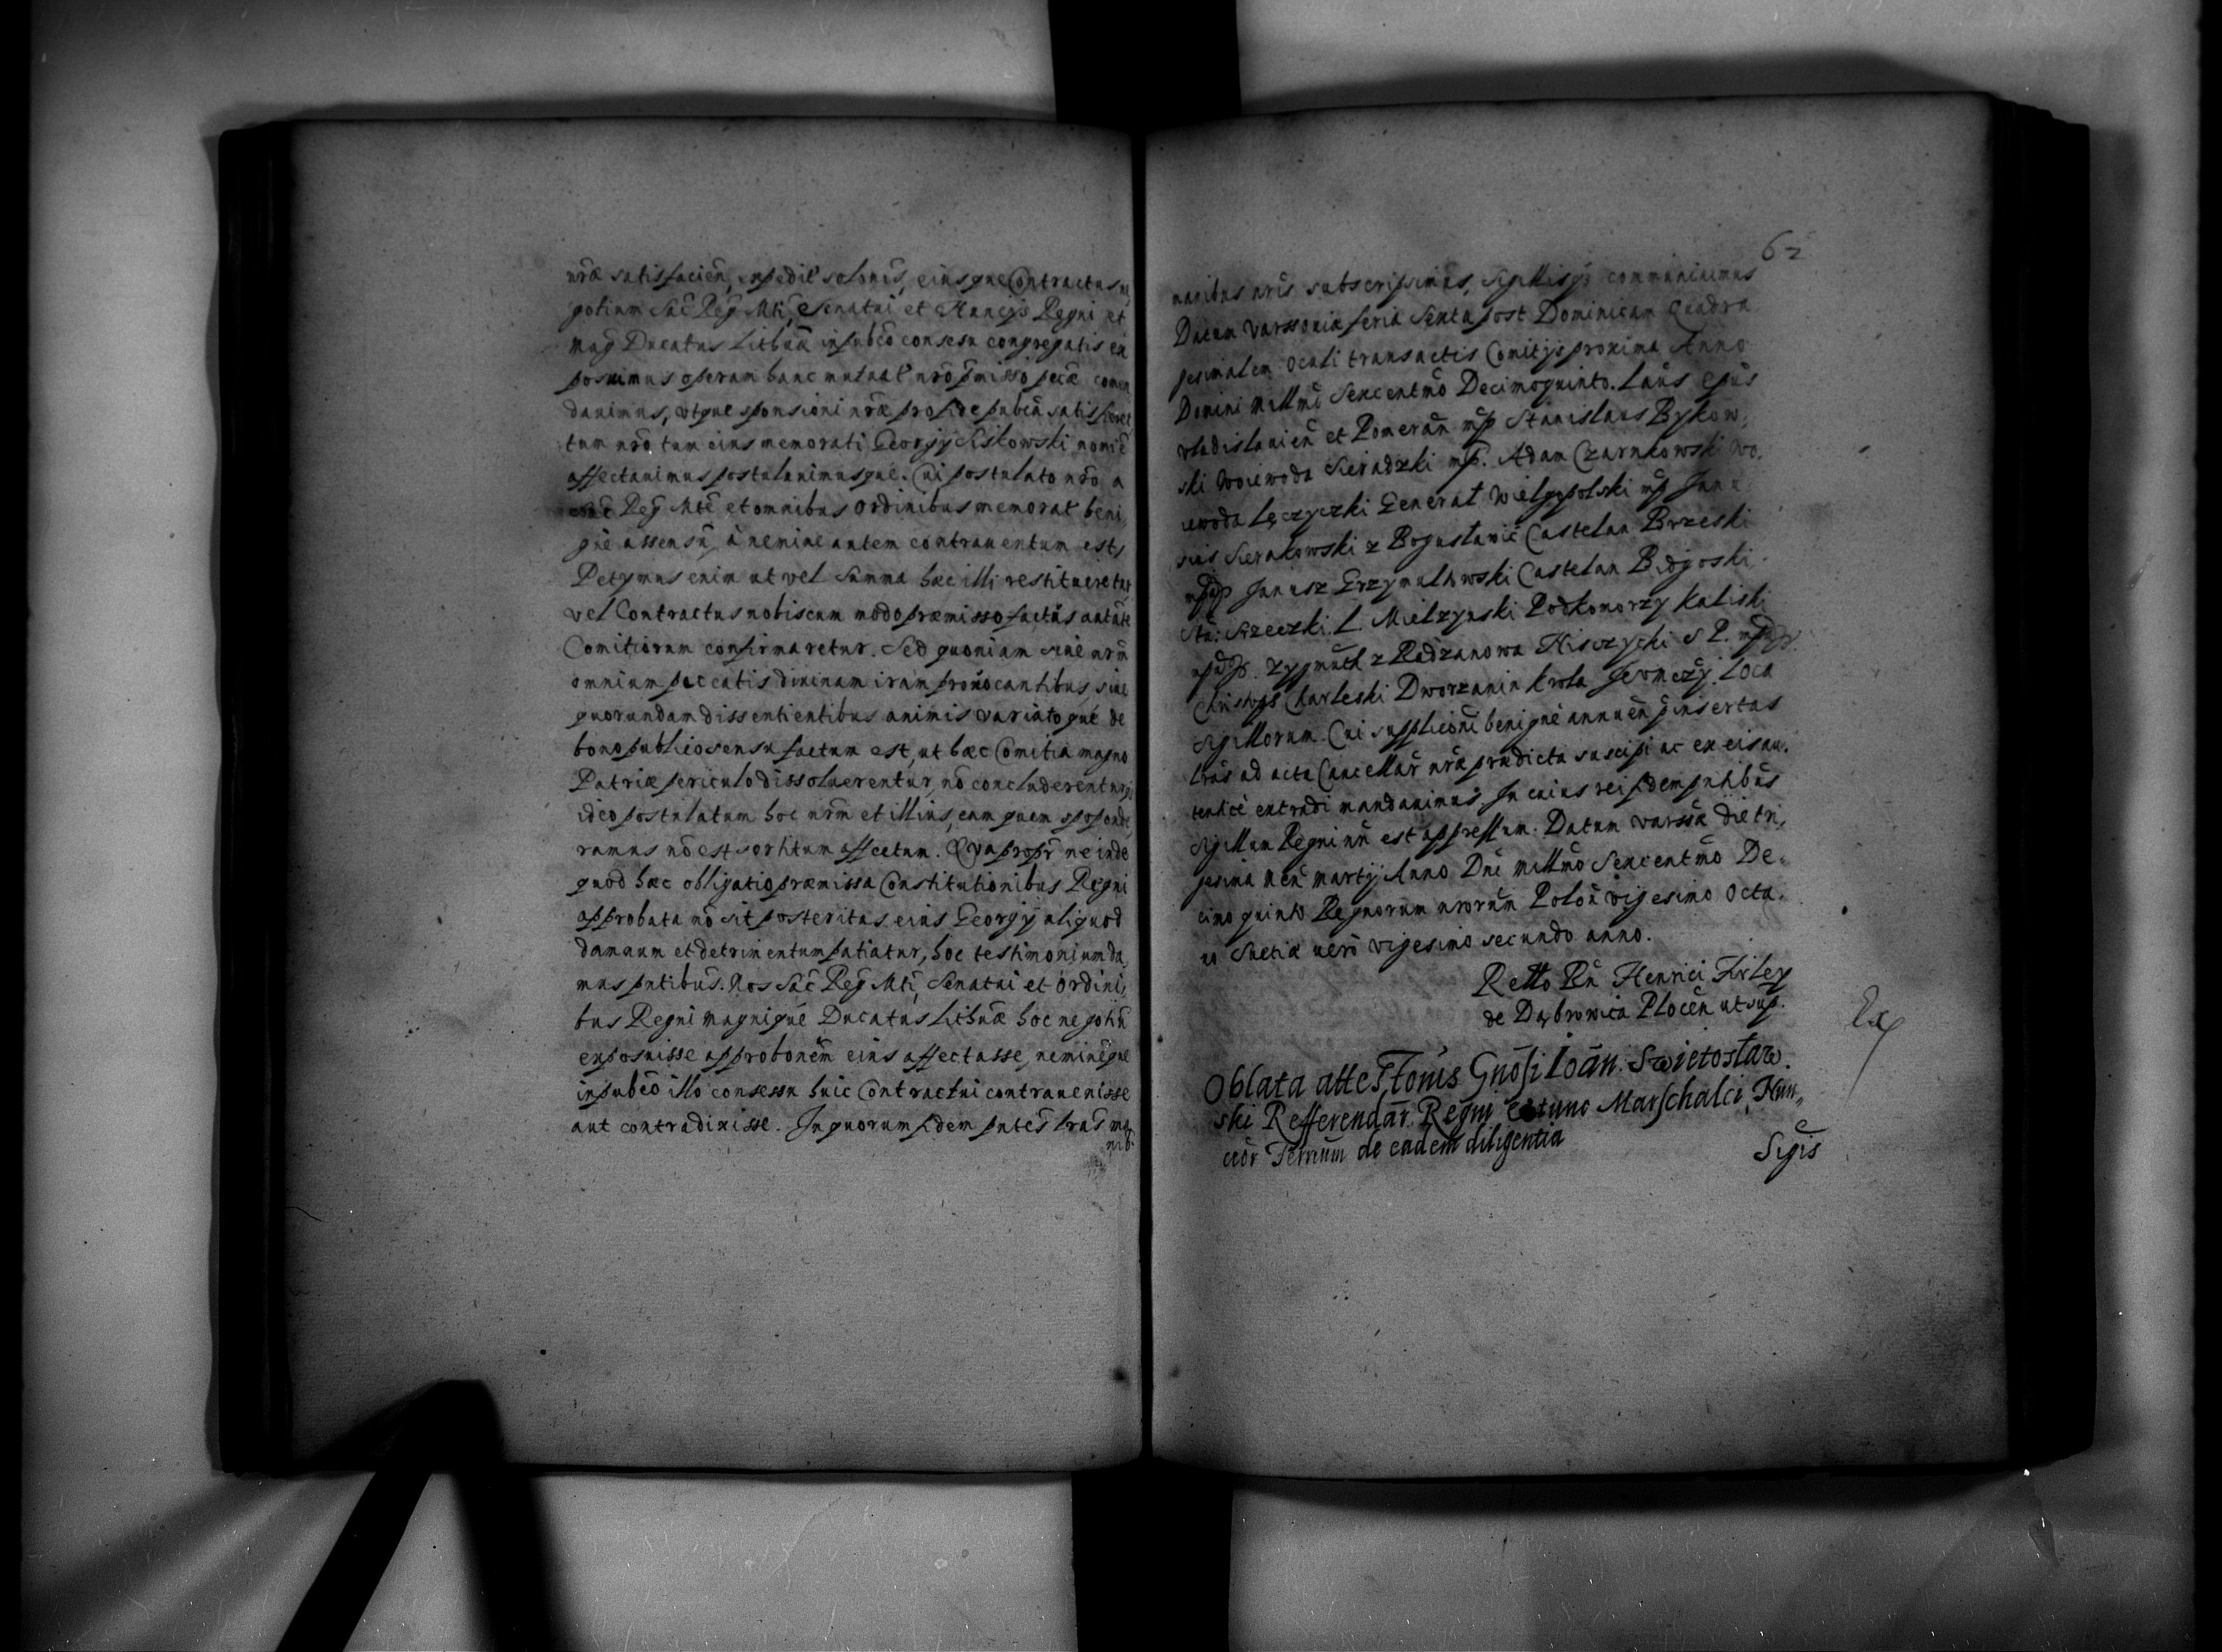 nr̃æ satisfacień, expedit solonis, eiusque Contractus ne
gotium Sac̃ Reg̃ Mti, Senatui et Nuncijs Regni et
Mag Ducatus Lithuã in publico consesu congregatis ex
posuimus operam hanc nr̃o p̃misso comen
dauimus, utque sponsioni nr̃æ pro fide publica satis fieret
tum nr̃o tum eius memorati Georgij Siskowski nomiẽ
affectauimus postulauimusque. Cui postulato nr̃o a
Sac̃ Reg̃ Mte et omnibus ordinibus memorat beni,
gne assensũ, à nemine autem contrauentum est,
Petymus enim ut vel Summa hæc illi restitueretur
vel Contractus nobiscum modo præmisso factus autãte
Comitiorum confirmaretur. Sed quoniam siue nrm̃
omnium peccatis diuinam iram prouocantibus, siue
quorundam dissentientibus animis variatoque de
bono publico sensu factum est, ut hæc Comitia magno
Patriæ periculo dissoluerentur, nõ concluderentur,
ideo postulatum hoc nrm̃ et illius, cum quem spoponde
ramus nõ est sortitum effectum. Quapropr̃ ne inde
quod hæc obligatio præmissa Constitutionibus Regni
approbata nõ sit posteritas eius Georgij aliquod
damnum et detrimentum patiatur, hoc testimonium da,
mus pn̄tibus. Nos Sac̃ Reg̃ Mti, Senatui et ordini,
bus Regni Magnique Ducatus Lithuæ hoc negotiũ
exposuisse approbonem̃ eius affectasse, neminẽque
in publico illo consessu huic Contractui contrauenisse
aut contradixisse. In quorum fidem pn̄tes lr̃as ma
nib.
62
manibus nr̃is subscripsimus, sigillisq; communiuimus
Datum Varssouiæ feria Sexta post Dominicam Quadra
gesimalem Oculi transactis Comitijs proxima Anno
Domini Millmo Sexcentmõ Decimoquinto. Laur̃s epũs
Vladislauień et Pomerań mp̃ Stanislaus Bykow,
ski Woiewoda Sieradzki mp̃. Adam Czarnkowski Wo,
iewoda Łęczyczki Generał Wielgopolski mp̃ Joan
nes Sierakowski z Bogusławic Castelan Brzeski
mpp Janusz Grzymułtowski Castelan Bidgoski
Sta: Srzeczki. L. Mielzynski Podkomorzy Kaliski
mpp. Zygmũth z Radzanowa Hisczycki S P. mpp.
Christoph Charleski Dworzanin Krola Jeomczy. Loca
Sigillorum. Cui supplicioni benigne annueñ p̃insertas
lr̃as ad acta Cancellar̃ nr̃a prædicta suscipi ac ex eis au,
tentice extradi mandauimus. In cuius rei fidem pn̄tibus
Sigillum Regni nr̃i est appressum. Datum Varssæ die tri,
gesima Meñ Martij Anno Dnĩ Millmõ Sexcentmõ De,
cimo quinto Regnorum nrorum Poloñ vigesimo octa,
uo Suetiæ uero vigesimo secundo anno.
Retto Rñ Henrici Firley
de Dąbrowica Płoceñ ut sup.
Oblata attestonis Gnosi Ioan. Swietosław.
ski Refferendar Regni et tunc Marschalci Nun,
cior̃ Terrium de eadem diligentia
Sigis